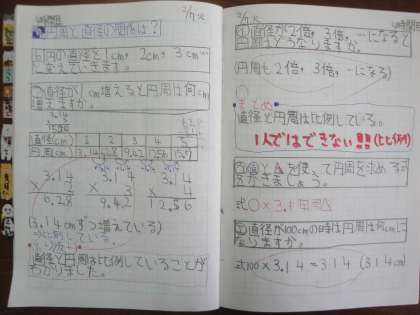 2/7 火
円周と直径の関係は?
円の直径を1cm, 2cm, 3cm…
と変えていきます。
直径が cm増えると円周は何cm
増えますか。
直径(cm) 1 2 3 4
円周(cm) 3.14 6.28 9.42 12.56
3.14 3.14 3.14
× 2 × 3 × 4
6.28 9.42 12.56
(3.14cmずつ増えている)
直径と円周は比例していることが
わかりました。
2/7 火
④直径が2倍, 3倍, …になると
円周はどうなりますか。
(円周も2倍, 3倍, …になる)
まとめ
直径と円周は比例している。
1人ではできない!!(比例)
を使って円周を求める式
をかきましょう。
式○×3.14=△
直径が100cmの時は円周は何cmに
なりますか。
式100×3.14=314 (314cm)